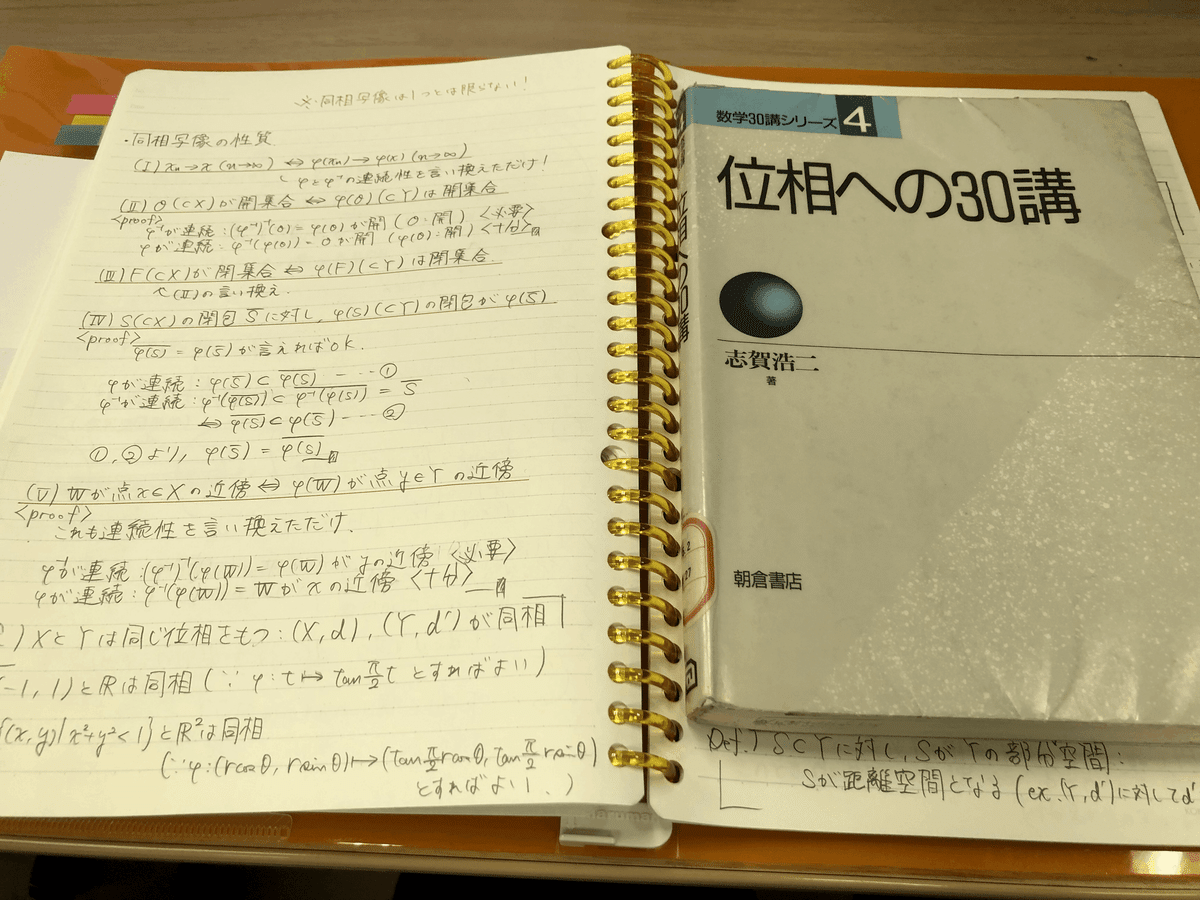 ※・同相写像は1つとは限らない!
・同相写像の性質
(Ⅰ) xn→x (n→∞) ⇔ φ(xn)→φ(x) (n→∞)
φとφ⁻¹の連続性を言い換えただけ!
(Ⅱ) O(⊂X)が開集合 ⇔ φ(O)(⊂Y)は開集合
<proof>
φ⁻¹が連続:(φ⁻¹)⁻¹(O)=φ(O)が開(O:開)<必要>
φが連続:φ⁻¹(φ(O))=Oが開(φ(O):開)<十分>
(Ⅲ) F(⊂X)が閉集合 ⇔ φ(F)(⊂Y)は閉集合.
(Ⅱ)の言い換え.
(Ⅳ) S(⊂X)の閉包S̄に対し,φ(S)(⊂Y)の閉包がφ(S̄)
<proof>
\overline{φ(S)}=φ(S̄)が言えればok.
φが連続:φ(S̄)⊂\overline{φ(S)} ……①
φ⁻¹が連続:φ⁻¹(\overline{φ(S)})⊂\overline{φ⁻¹(φ(S))}=S̄
⇔ \overline{φ(S)}⊂φ(S̄) ……②
①,②より,φ(S̄)=\overline{φ(S)}
(Ⅴ) Wが点x∈Xの近傍 ⇔ φ(W)が点y∈Yの近傍
<proof>
これも連続性を言い換えただけ.
φ⁻¹が連続:(φ⁻¹)⁻¹(φ(W))=φ(W)がyの近傍<必要>
φが連続:φ⁻¹(φ(W))=Wがxの近傍<十分>
)XとYは同じ位相をもつ:(X,d),(Y,d')が同相
-1,1)とRは同相(∵φ:t↦tan π/2 t とすればよい)
(x,y)|x²+y²<1}とR²は同相
(∵φ:(rcosθ,rsinθ)↦(tan π/2 r cosθ,tan π/2 r sinθ)
とすればよい.)
数学30講シリーズ 4
位相への30講
志賀浩二
著
朝倉書店
Def.) S⊂Yに対し,SがYの部分空間:
Sが距離空間となる(ex.(Y,d')に対してd'